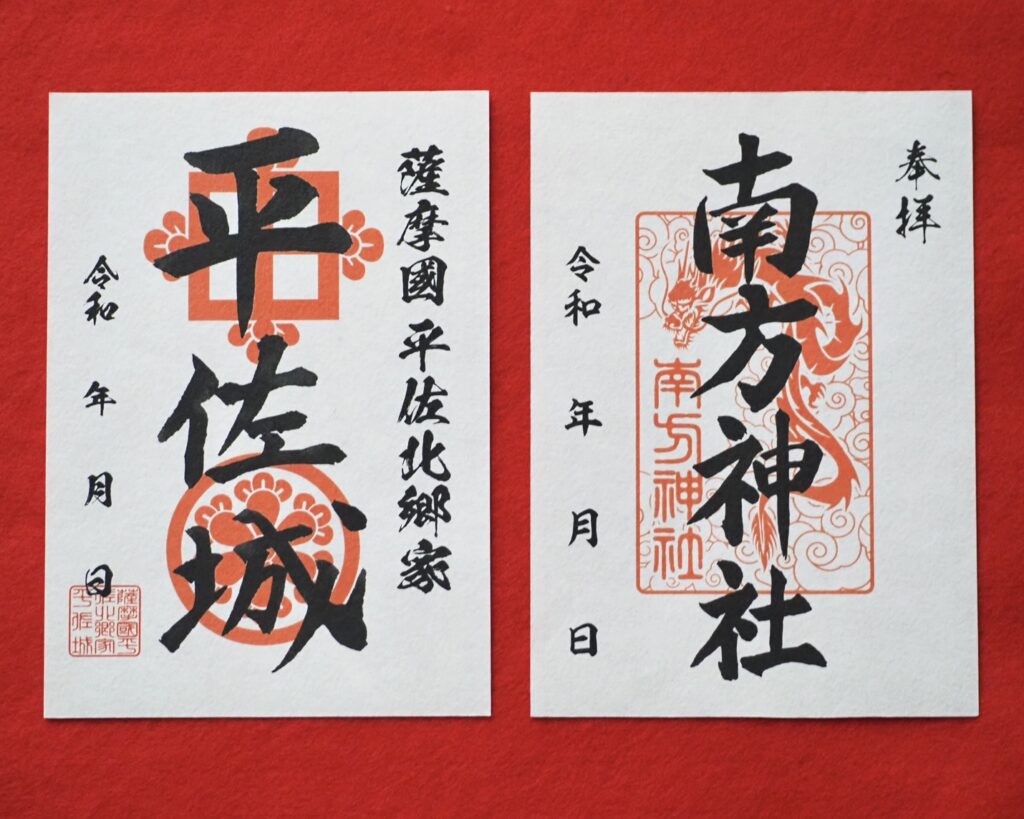 薩摩國 平佐北郷家
平佐城
令和 年 月 日
薩摩國平
佐北郷家
平佐城
奉拝
南方神社
南方神社
令和 年 月 日